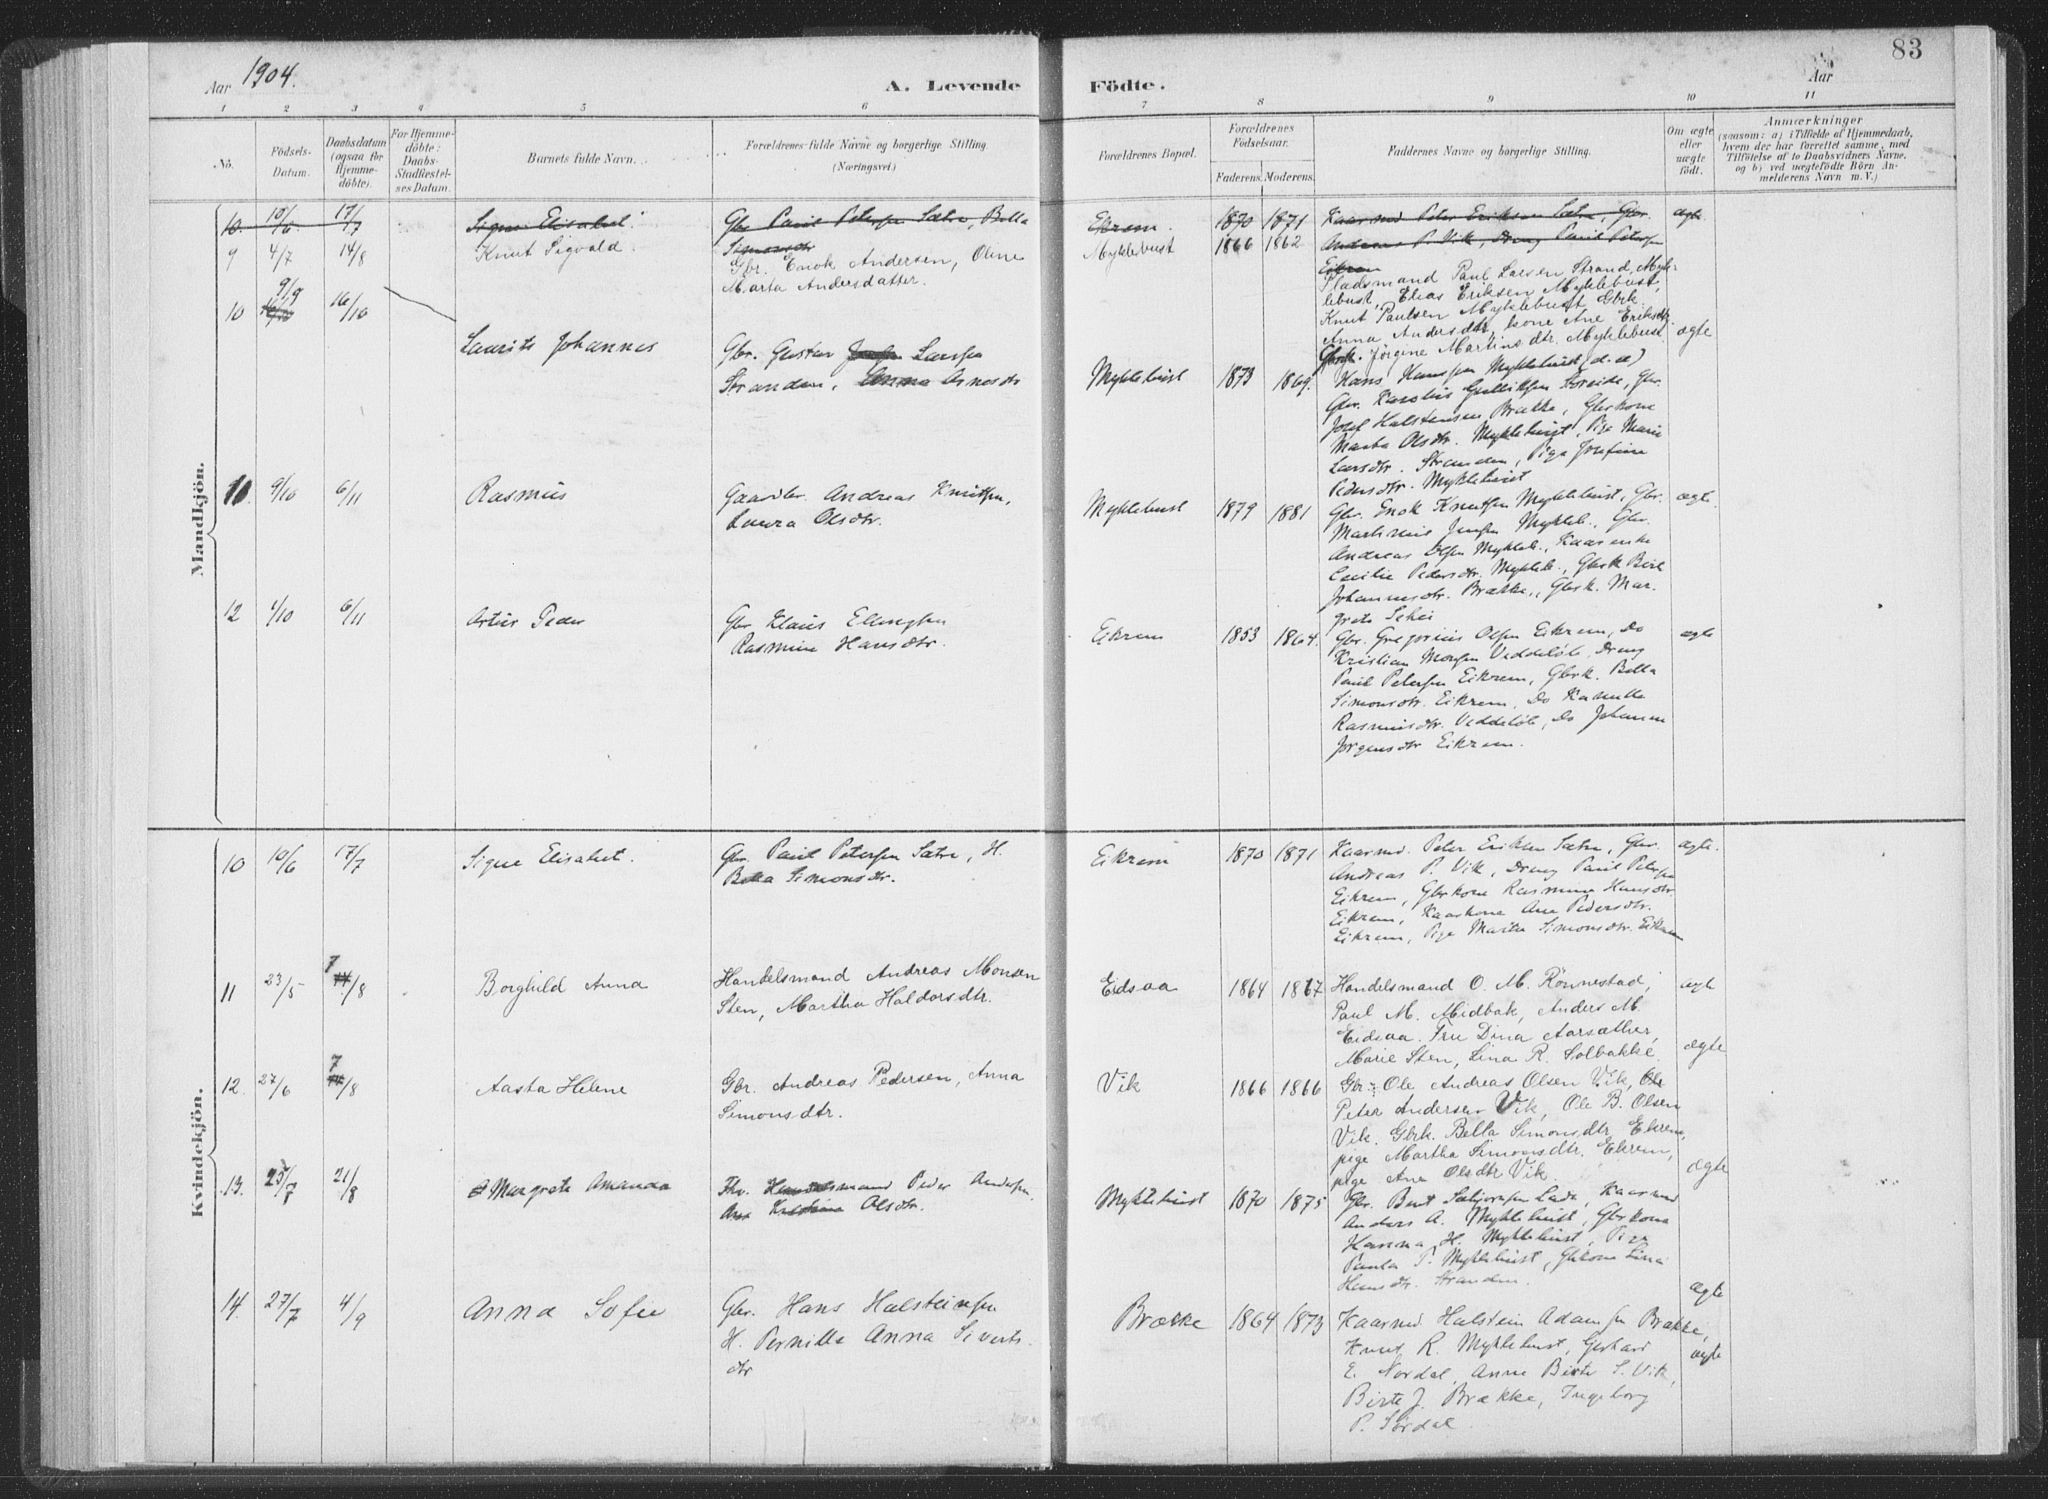 83
Aar 1904.
A. Levende Födte.
Aar
1 2 3 4 5 6 7 8 9 10 11
Nö.
Födsels-Datum.
Daabsdatum (ogsaa for Hjemme-döbte).
For Hjemme-döbte: Daabs-Stadfæstel-ses Datum.
Barnets fulde Navn.
Forældrenes fulde Navne og borgerlige Stilling. (Næringsvei.)
Forældrenes Bopæl.
Forældrenes Födselsaar.
Faderens. Moderens.
Faddernes Navne og borgerlige Stilling.
Om ægte eller uægte födt.
Anmærkninger
(saasom: a) i Tilfælde af Hjemmedaab, hvem der har forrettet samme, med Tilföielse af to Daabsvidners Navne. og b) ved uægtefödte Börn An-melderens Navn m. V.)
Mandkjön.
10. 10/6 17/7 Signe Elisabet. Gbr Paul Petersen Sætre, Bella Ekrem. 1870 1871 Kaarmd Peter Eriksen Sætre, Gbr. ægte
Simonsdtr Andreas P. Vik, Dreng Paul Petersen
Eikrem
9 4/7 14/8 Knut Sigvald Gbr. Enok Andersen, Oline Myklebust 1866 1862
Marta Andersdatter.
Pladsmand Paul Larsen Strand, Myk-
lebust, Elias Eriksen Myklebust,
Knut Paulsen Myklebust Gbrk.
Anna Andersdtr, kone Ane Eriksdtr.
Gbrk. Jørgine Martinsdtr. Myklebust ægte
10 9/9 16/10 Laurits Johannes Gbr. Gustav Larsen
Stranden, Anna Arnesdtr Myklebust 1873 1869.
Hans Hansen Myklebust
Gbr. Karolus
Josef Halstensen Brække, Gbrkone
Marta Olsdtr. Myklebust, Pige Marie
Larsdtr. Stranden, Pige Josefine
Pedersdtr. Myklebust
9/10 6/11 Rasmus Gaardbr. Andreas Knutsen,
Laura Olsdtr. Myklebust 1879 1881 ægte
Gbr. Enok Knutsen Myklebust, Gbr.
Martinus Jensen Mykleb., Gbr.
Andreas Olsen Mykleb., Kaarenke
Cecilie Pedersdtr. Mykleb., Gbrk Birte
Johannesdtr. Brække, Gbrk. Mar-
grete
12 4/10 6/11 Artur Peder Gbr Klaus Ellingsen
Rasmine Hansdtr. Eikrem 1853 1864. ægte
Gbr. Gregorius Olsen Eikrem, Do
Kristian Monsen Veddeløb, Dreng
Paul Petersen Eikrem, Gbrk. Bella
Simonsdtr. Eikrem, Do Kamilla
Rasmusdtr. Veddeløb, Do Johanna
Jørgensdtr Eikrem.
Kvindekjön.
10 10/6 17/7 Signe Elisabet. Gbr. Paul Petersen Sætre, H.
Bella Simonsdtr. Eikrem 1870 1871 ægte.
Kaarmd. Peter Eriksen Sætre, Gbr.
Andreas P. Vik, Dreng Paul Petersen
Eikrem, Gbrkone Rasmine Hansdtr.
Eikrem, Kaarkone Ane Pedersdtr.
Eikrem, Pige Marta Simonsdtr. Eikrem
11 23/5 7/8 Borghild Anna Handelsmand Andreas Monsen
Sten, Martha Haldorsdtr. Eidsaa 1864 1867 ægte
Handelsmand O. M. Rönnestad,
Paul M. Midbøk, Anders M.
Eidsaa. Fru Dina Aarsæther,
Marie Sten, Lina R. Solbakke. ægte
12. 27/6 7/8 Aasta Helene Gbr. Andreas Pedersen, Anna
Simonsdtr. Vik 1866 1866
Gbr. Ole Andreas Olsen Vik,
Peter Andersen Vik, Ole B. Olsen
Vik. Gbrk. Bella Simonsdtr. Ekrem,
pige Martha Simonsdtr. Ekrem,
pige Ane Olsdtr Vik. ægte
13. 25/7 21/8 Margrete Amanda Fhv. Handelsmand Peder Andersen.
Ane Kristine Olsdtr. Myklebust 1870 1875
Gbr. Bent Lade, Kaarmd
Anders A. Myklebust, Gbrkone
Hanna H. Myklebust, Pige
Paula P. Myklebust, Gbkone Lina
Hansdtr. Stranden. ægte
14. 27/7 4/9 Anna Sofie Gbr. Hans Halsteinsen
H. Pernille Anna Siverts-
dtr Brække 1864 1873 ægte
Kaarmd Halstein Adamsen Brække,
Knut R. Myklebust, Gerhard
E. Nordal, Anne Birte S. Vik,
Birte J. Brække, Ingeborg
P. Sørdal